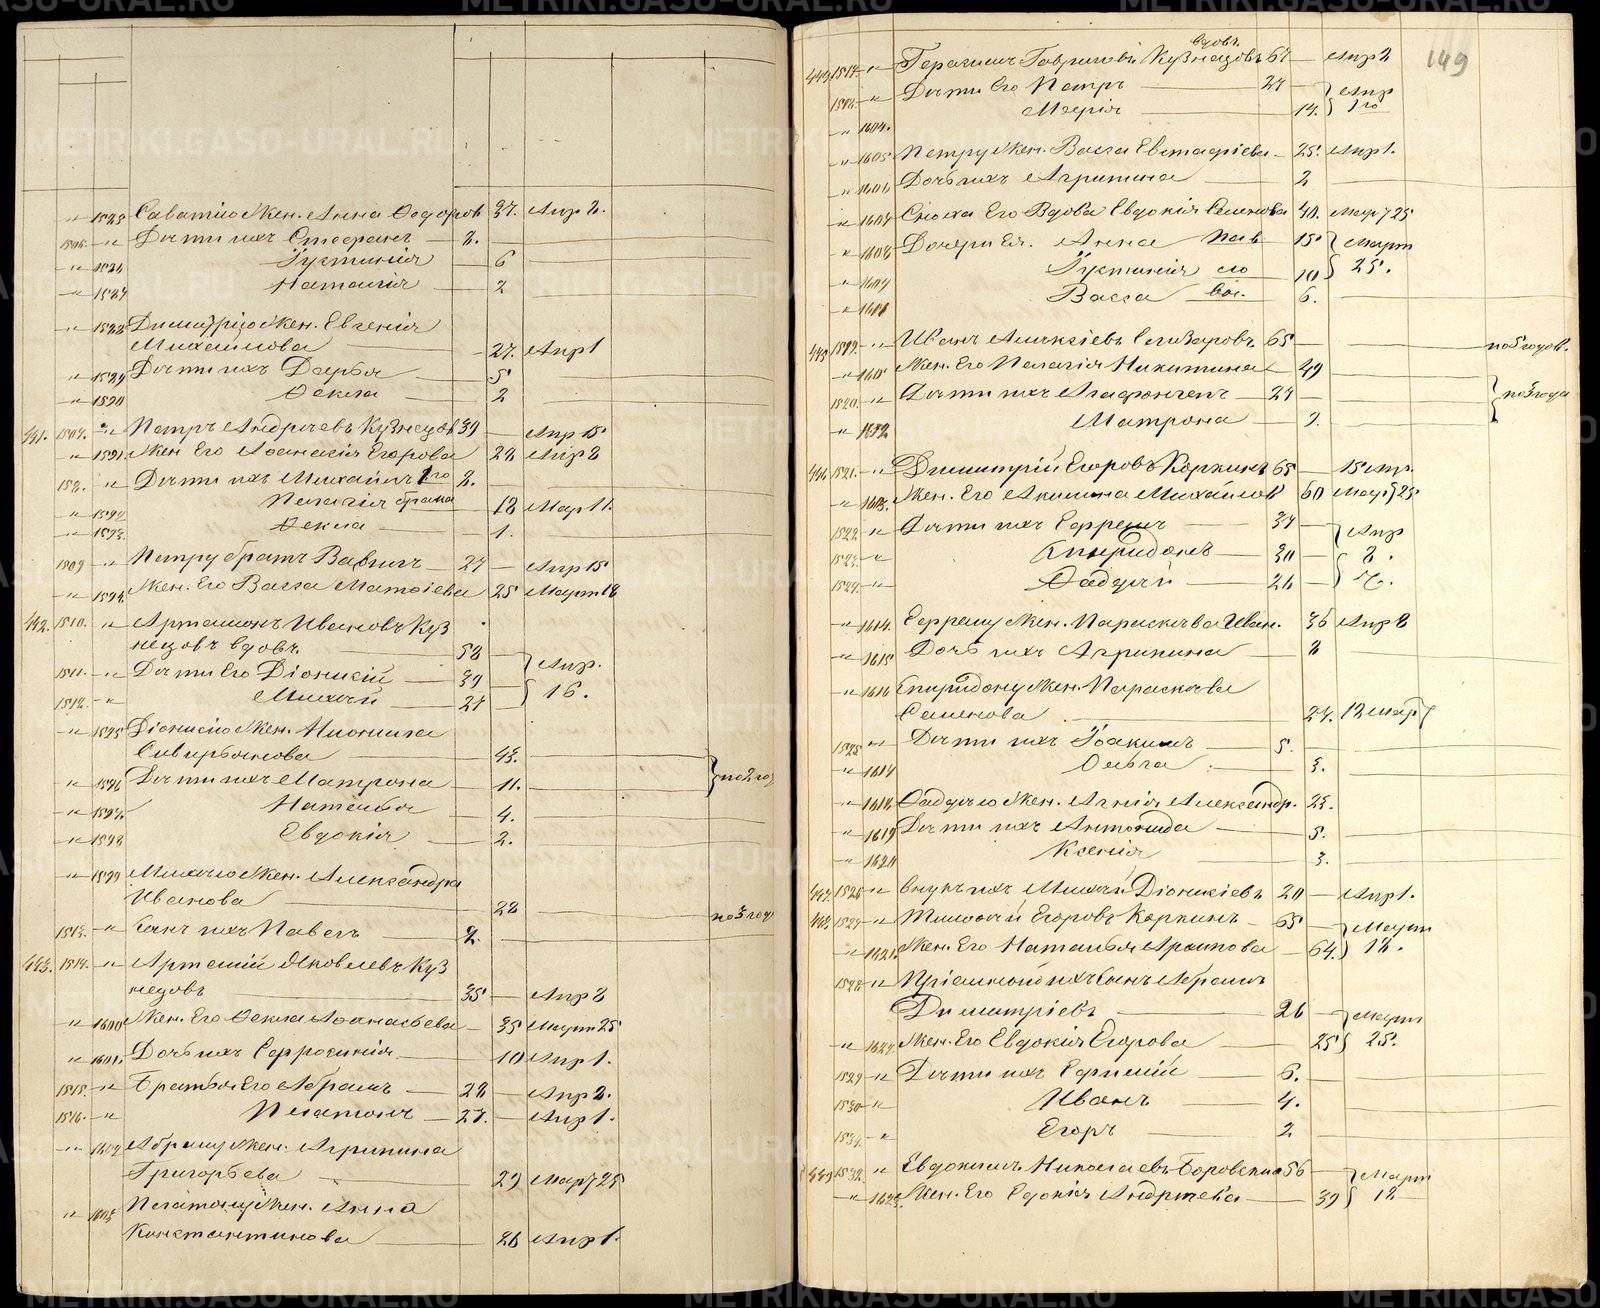 " 1525 Саватію Жен. Анна Ѳеодоров 37. Апр 2.
1506. " Дѣти ихъ Стефанъ 8.
" 1526 Іустинія 6
" 1527 Наталія 2
" 1528 Димитрію Жен. Евгенія
Михайлова 27. Апр 1
" 1529 Дѣти ихъ Дарья 5
" 1530 Ѳекла 2
441. 1507. " Петръ Андреевъ Кузнецовъ 39 Апр 15
" 1591. Жен Его Аѳанасія Егорова 28 Апр 8
" Дѣти ихъ Михаилъ 1го 8.
" 1592 Пелагія брака 18 Мар 11.
" 1593. Ѳекла 1.
1509 " Петру братъ Вавилъ 27 Апр 15
" 1594. Жен. Его Васса Матѳіева 25 Март 18
442. 1510. " Артамонъ Ивановъ Куз
нецовъ вдовъ. 58
1511. " Дѣти Его Діонисій 39 Апр.
1512. " Михей 27 16.
" 1595 Діонисію Жен. Неонила
Сиверьянова 43.
" 1596 Дѣти ихъ Матрона 11. по 2 год
" 1597. Наталья 4.
" 1598 Евдокія 2.
" 1599 Михею Жен. Александра
Иванова 28 по 3 году
1513. " Сынъ ихъ Павелъ 2.
443. 1514. " Артемій Яковлевъ Куз
нецовъ 35 Апр 8
" 1600 Жен. Его Ѳекла Аѳанасьева 35 Март 25
" 1601. Дочь ихъ Ефросинія 10 Апр 1.
1515. " Братья Его Абрамъ 28 Апр 2.
1516. " Платонъ 27. Апр 1.
" 1602 Абраму Жен. Агрипина
Григорьева 29 Март 25
" 1603 Платону Жен. Анна
Константинова 26 Апр 1.
149
вдовъ.
444 1517. " Герасимъ Гавриловъ Кузнецовъ 67 Апр 2
1518. " Дѣти Его Петръ 27 Апр
" 1604. Марія 14. 10
" 1605 Петру Жен. Васса Евстафіева 25. Апр 1.
" 1606 Дочь ихъ Агрипина 2
" 1607 Сноха Его Вдова Евдокія Семенова 40. Март 25
" 1608 Дочери Ея. Анна 15 Март
" 1609 Іустинія 10 25.
" 1610 Васса 6.
445 1519. " Иванъ Алексіевъ Елизаровъ 65 по 5 годов.
" Жен. Его Пелагія Никитина 49
1520. " Дѣти ихъ Агафонгелъ 27 по 3 года
" 1612 Матрона 9.
446. 1521. " Димитрій Егоровъ Коркинъ 65 15 апр.
" 1613. Жен. Его Акилина Михайлов 60 Март 25
1522. " Дѣти ихъ Ефремъ 37 Апр
1523. " Спиридонъ 30 8.
1524. " Ѳадѣй 26
" 1614. Ефрему Жен. Параскева Иван. 36 Апр 8
" 1615 Дочь ихъ Агрипина 8
" 1616 Спиридону Жен. Параскева
Семенова 27. 12 мар
1525 " Дѣти ихъ Іоакимъ 5.
" 1617 Ольга 3.
" 1618 Ѳадѣю Жен. Агнія Александр. 25.
" 1619 Дѣти ихъ Антонида 5.
" 1620 Ксенія 3.
447. 1526 " Внукъ ихъ Михей Діонисіевъ 20 Апр 1.
448. 1527 " Тимоѳей Егоровъ Коркинъ 65 Март
" 1621. Жен. Его Наталья Архипова 64. 12.
1528 " Пріемной ихъ Сынъ Абрамъ
Димитріевъ 26 Март
" 1622 Жен. Его Евдокія Егорова 25 25.
1529 " Дѣти ихъ Ефимій 6.
1530 " Иванъ 4.
1531. " Егоръ 2
449 1532. " Евдокимъ Николаевъ Боровскихъ 56 Март
" 1623. Жен. Его Евдокія Андреева 39 12